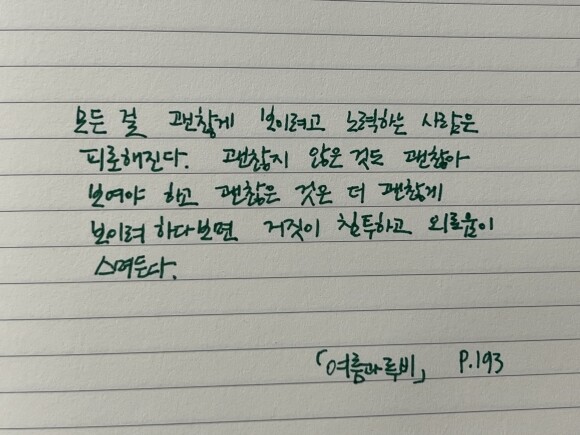 모든 걸 괜찮게 보이려고 노력하는 사람은
피로해진다. 괜찮지 않은 것도 괜찮아
보여야 하고 괜찮은 것은 더 괜찮게
보이려 하다보면 거짓이 침투하고 외로움이
스며든다.
「여름과 루비」 P.193